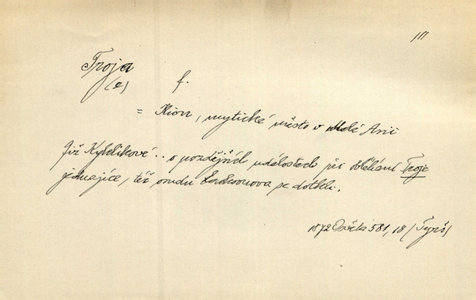 111
Troja
(e)
f.
= Ilion, mytické město v Malé Asii
Již Kyklikové.. o pozdějších událostech při obležení Troje
jednajíce, též osudu Laokoonova se dotkli.
1872 Osvěta 581, 18 (Tyrš)